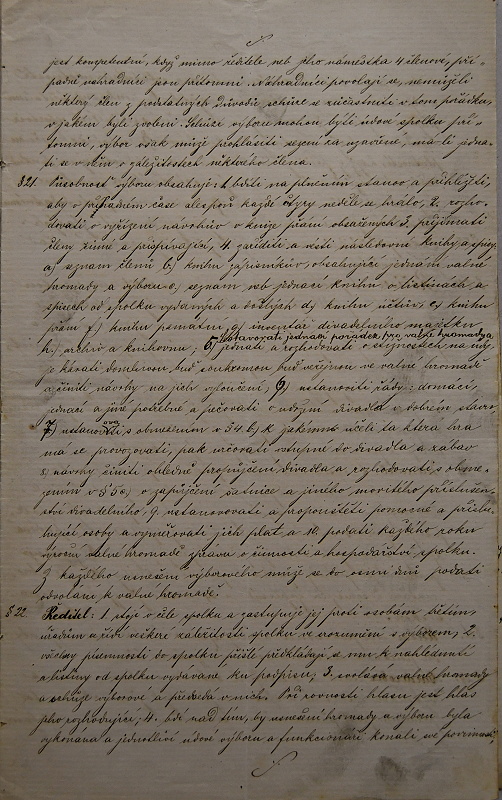 jest kompetentní, když mimo ředitele neb jeho náměstka 4 členové, pří-
padně nahradníci jsou přítomni. Náhradníci povolají se, nemůže-li
některý člen z podstatných důvodů schůze se zúčastniti v tom pořádku,
v jakém byli zvoleni. Schůzi výboru mohou býti údové spolku pří-
tomni, výbor však může prohlásiti sezení za uzavřené, má-li jedna-
ti se v něm o záležitostech některého člena.
§21. Působnost výboru obsahuje: 1. bdíti na plnění stanov a přihlížeti,
aby v příhodném čase alespoň každé čtyry neděle se hrálo, 2. rozho-
dovati o vyřízení návrhův v knize přání obsažených 3. přijímati
členy činné a přispívající, 4. zaříditi a vésti následovní knihy a spisy:
a) seznam členů b) knihu zápisníkův, obsahující jednání valné
hromady a výboru c) seznam neb jednací knihu o listinách a
spisech od spolku vydaných a došlých d) knihu účtův, e) knihu
přání f.) knihu pamětní, g) inventář divadelního majetku
h.) archiv a knihovnu; 5)
ustanoviti jednací pořádek pro valné hromady,
6) jednati a rozhodovati o
a činiti návrhy na jich vyloučení, ustanoviti řády: domácí,
jednací a jiné potřebné a pečovati o udržení divadla v dobrém stavu,
7) s obmezením v §4 b) k jakému účeli ta která hra
má se provozovati, pak určovati vstupné do divadla a zábav
8) návrhy činiti ohledně propůjčení divadla a rozhodovati s obme-
zením v § 5 o zapůjčení šatnice a jiného movitého příslušen-
ství divadelního, 9. ustanovovati a propouštěti pomocné a přislu-
hující osoby a vyměřovati jich plat a 10. podati každého roku
výroční valné hromadě zprávu o činnosti a hospodářství spolku.
Z každého usnešení výborového může se do osmi dnů podati
odvolání k valné hromadě.
§22. Ředitel: 1. stojí v čele spolku a zastupuje jej proti osobám třetím,
úřadům a řídí veškeré záležitosti spolku ve srozumění s výborem, 2.
všechny písemnosti do spolku přišlé předkládají se mu k nahlédnutí
a listiny od spolku vydávané ku podpisu; 3. svolává valné hromady
a schůze výborové a předsedá v nich. Při rovnosti hlasů jest hlas
jeho rozhodující; 4. bdí nad tím, by usnešení hromady a výboru byla
vykonána a jednotliví údové výboru a funkcionáři konali své povinnosti,